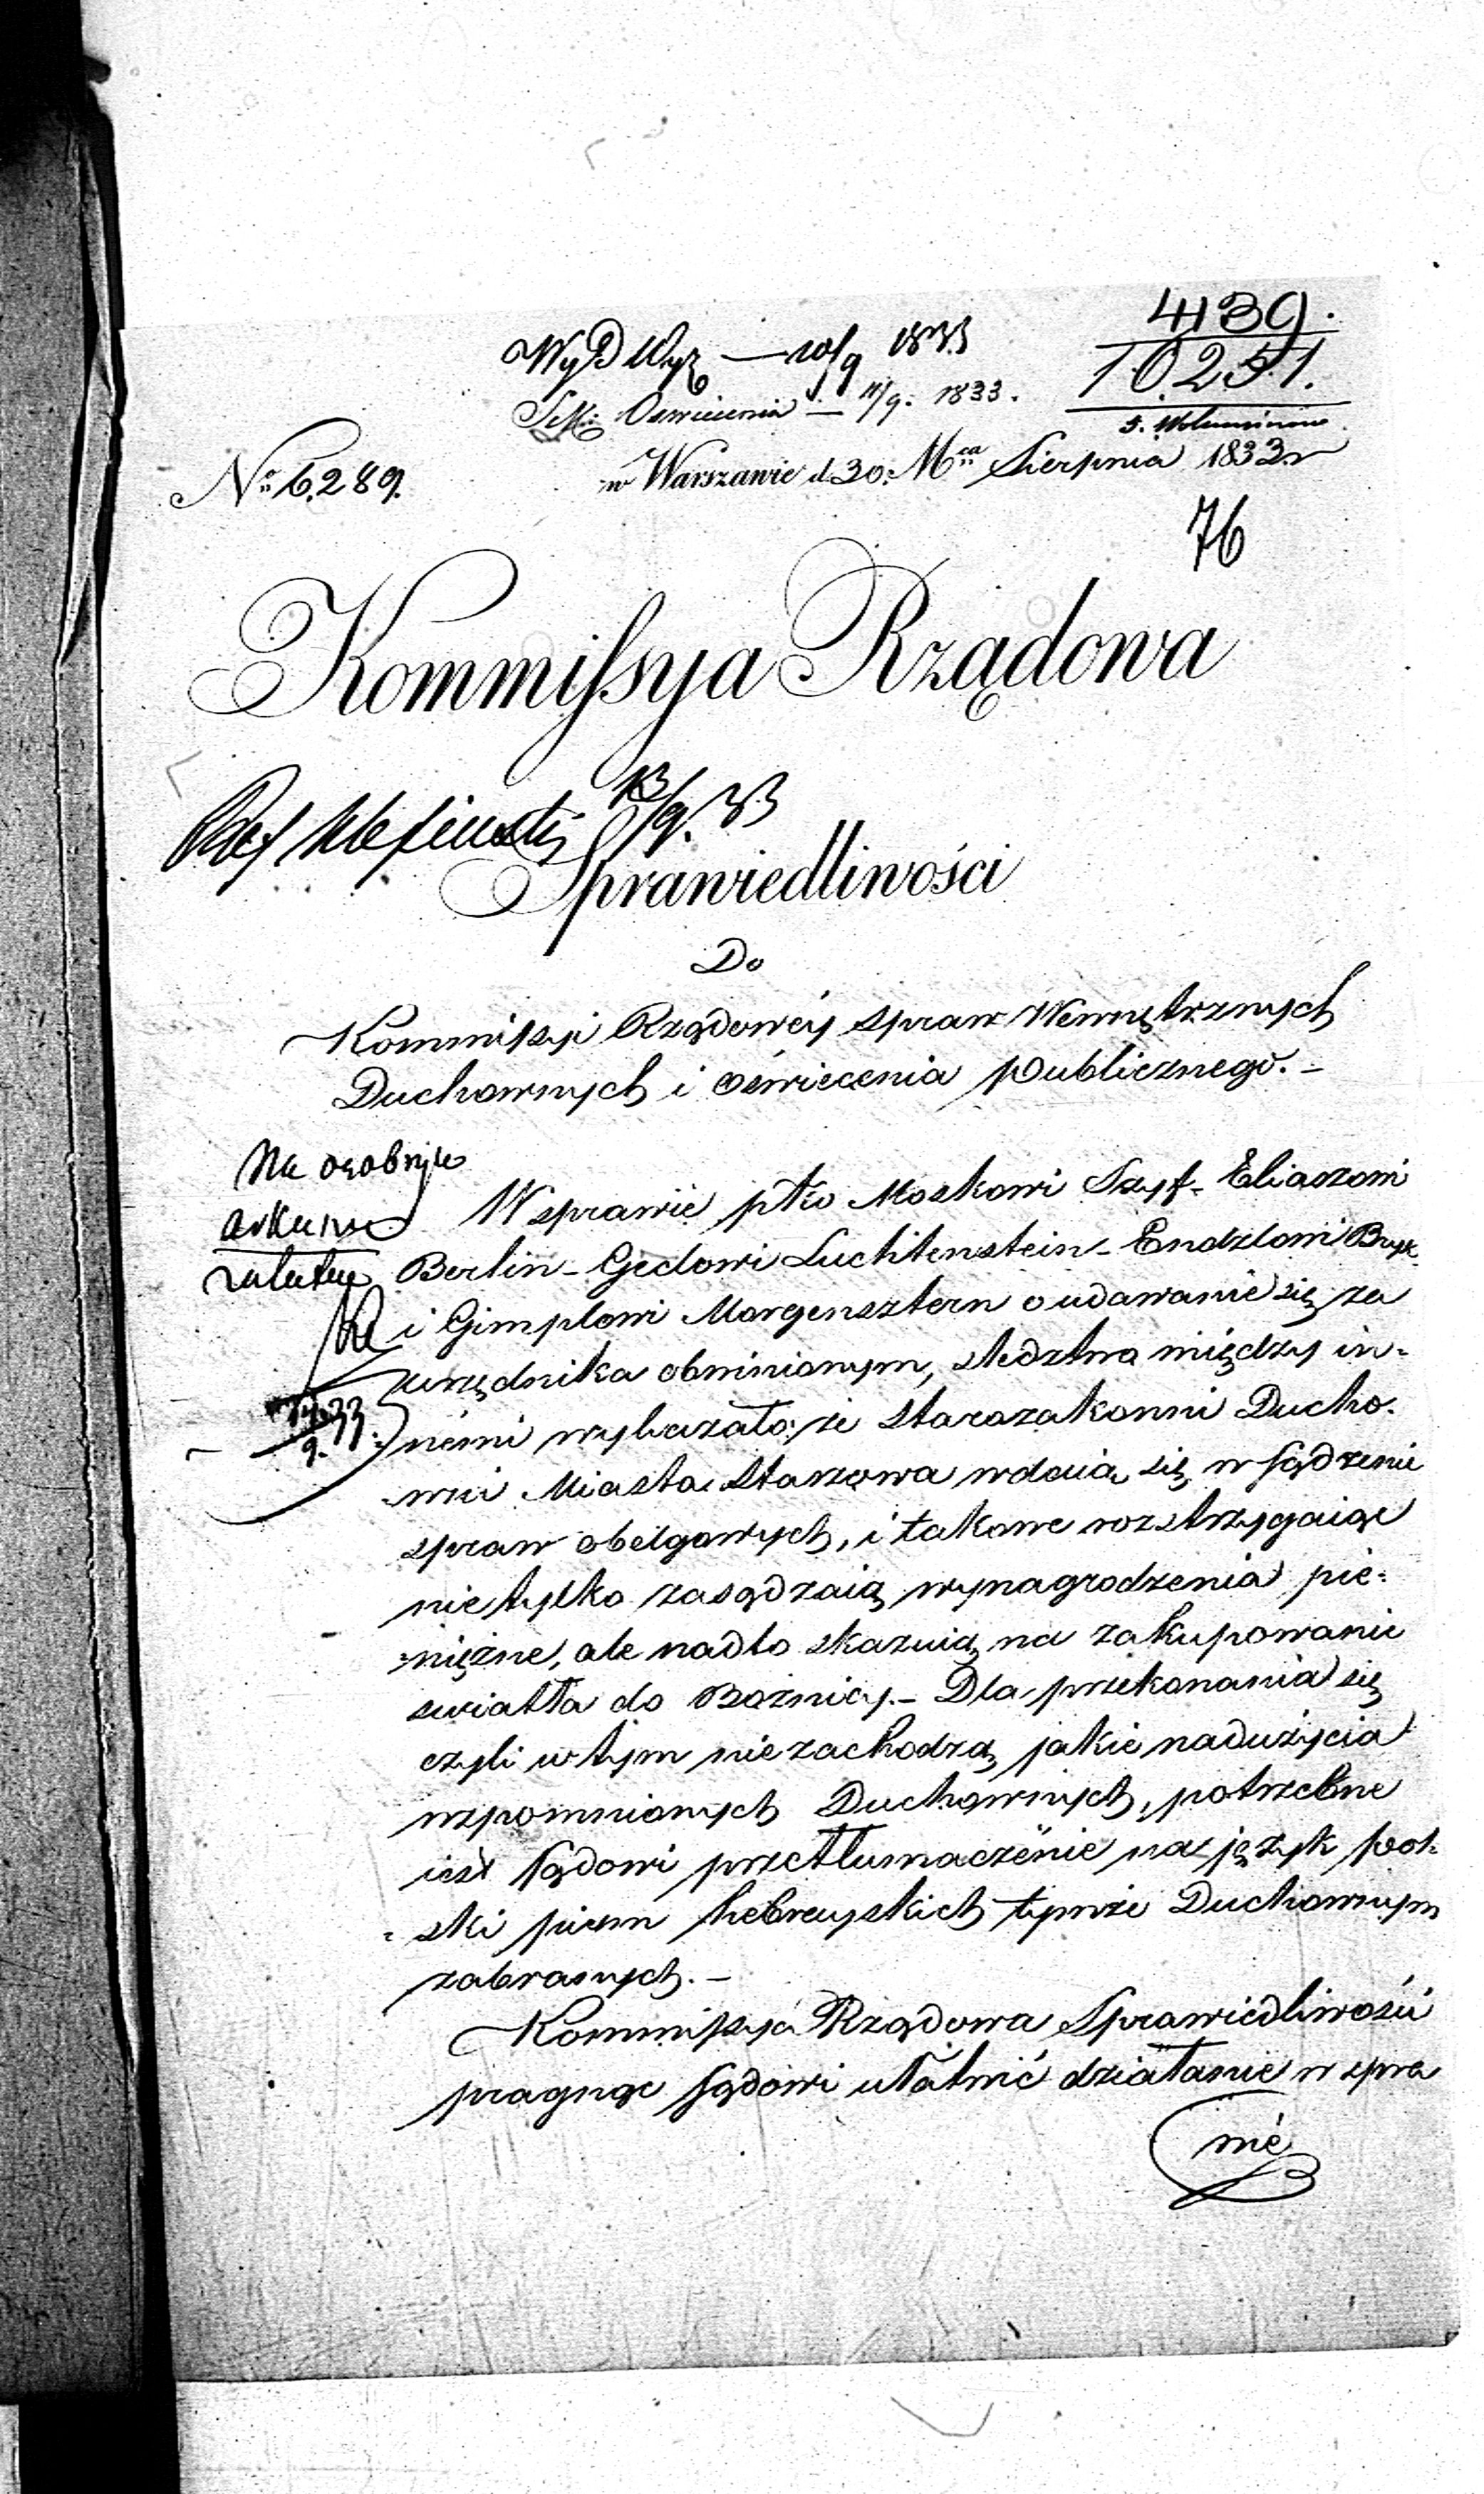 4139.
10251.
5. Woluminow
WyD Wyz — 10/9 1833
Sek: Oswiecenia — 11/9. 1833.
No 6.289.
w Warszawie d. 30. Mca Sierpnia 1833 r
76
Kommissya Rządowa
13/9. 33
Sprawiedliwości
Do
Kommissyi Rządowéy Spraw Wewnętrznych
Duchownych i Oświecenia Publicznego. -
Na osobnym
arkuszu
W sprawie pko Moskowi Szyf- Eliaszowi
Berlin - Gedlowi Luchtenstein - Endzlowi
i Gimplowi Morgensztern o udawanie się za
urzędnika obwinionym, śledztwo między in-
33
9.
nemi wykazało: że Starozakonni Ducho-
wni Miasta Staszowa wdaią się w sądzenie
spraw obelgowych, i takowe rozstrzygaiąc
nie tylko zasądzaią wynagrodzenia pie-
-niężne, ale nadto skazuią na zakupowanie
swiatła do Bożnicy. - Dla przekonania się
czyli w tym nie zachodzą jakie nadużycia
wzpomnionych Duchownych, potrzebne
iest Sądowi przetłumaczenie na język pol-
-ski pism hebreyskich tymże Duchownym
zabranych. -
Kommissya Rządowa Sprawiedliwości
pragnąc Sądowi ułatwić działanie w spra
wie